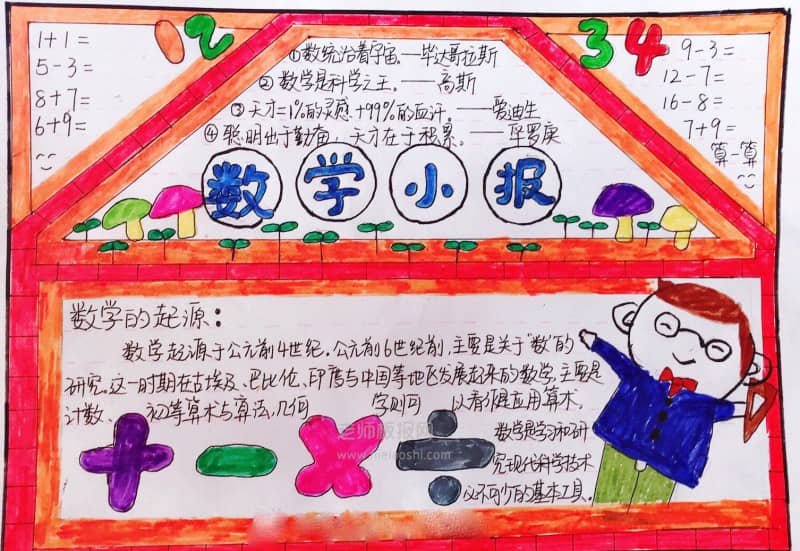 1+1=
5-3=
8+7=
6+9=
0 2
①数统治着宇宙。——毕达哥拉斯
② 数学是科学之王。——高斯
③天才=1%的灵感+99%的血汗。——爱迪生
④ 聪明出于勤奋,天才在于积累。——华罗庚
3 4
9-3=
12-7=
16-8=
7+9=
算一算
数学小报
数学的起源:
数学起源于公元前4世纪。公元前6世纪前,主要是关于"数"的
研究。这一时期在古埃及、巴比伦、印度与中国等地区发展起来的数学,主要是
计数、初等算术与算法,几何学则可以看作是应用算术。
数学是学习和研
究现代科学技术
必不可少的基本工具。
老师板报网